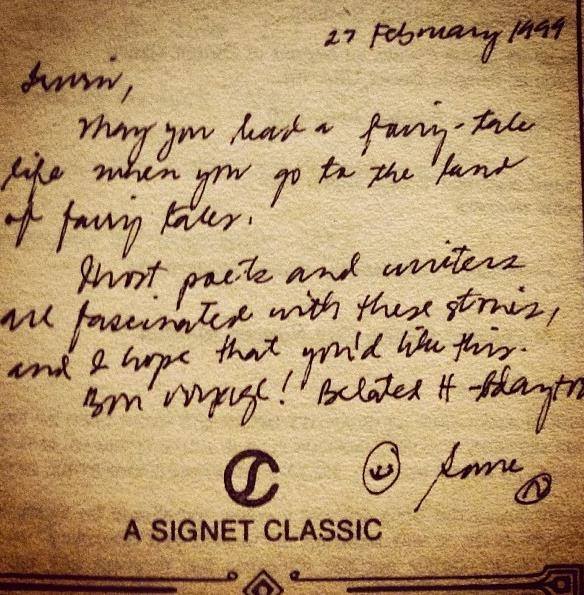 27 February 1999
May you lead a fairy-tale
life when you go to the land
of fairy tales.
Most poets and writers
are fascinated with these stories,
and I hope that you'd like this.
Bon voyage! Belated H-bday to
A SIGNET CLASSIC